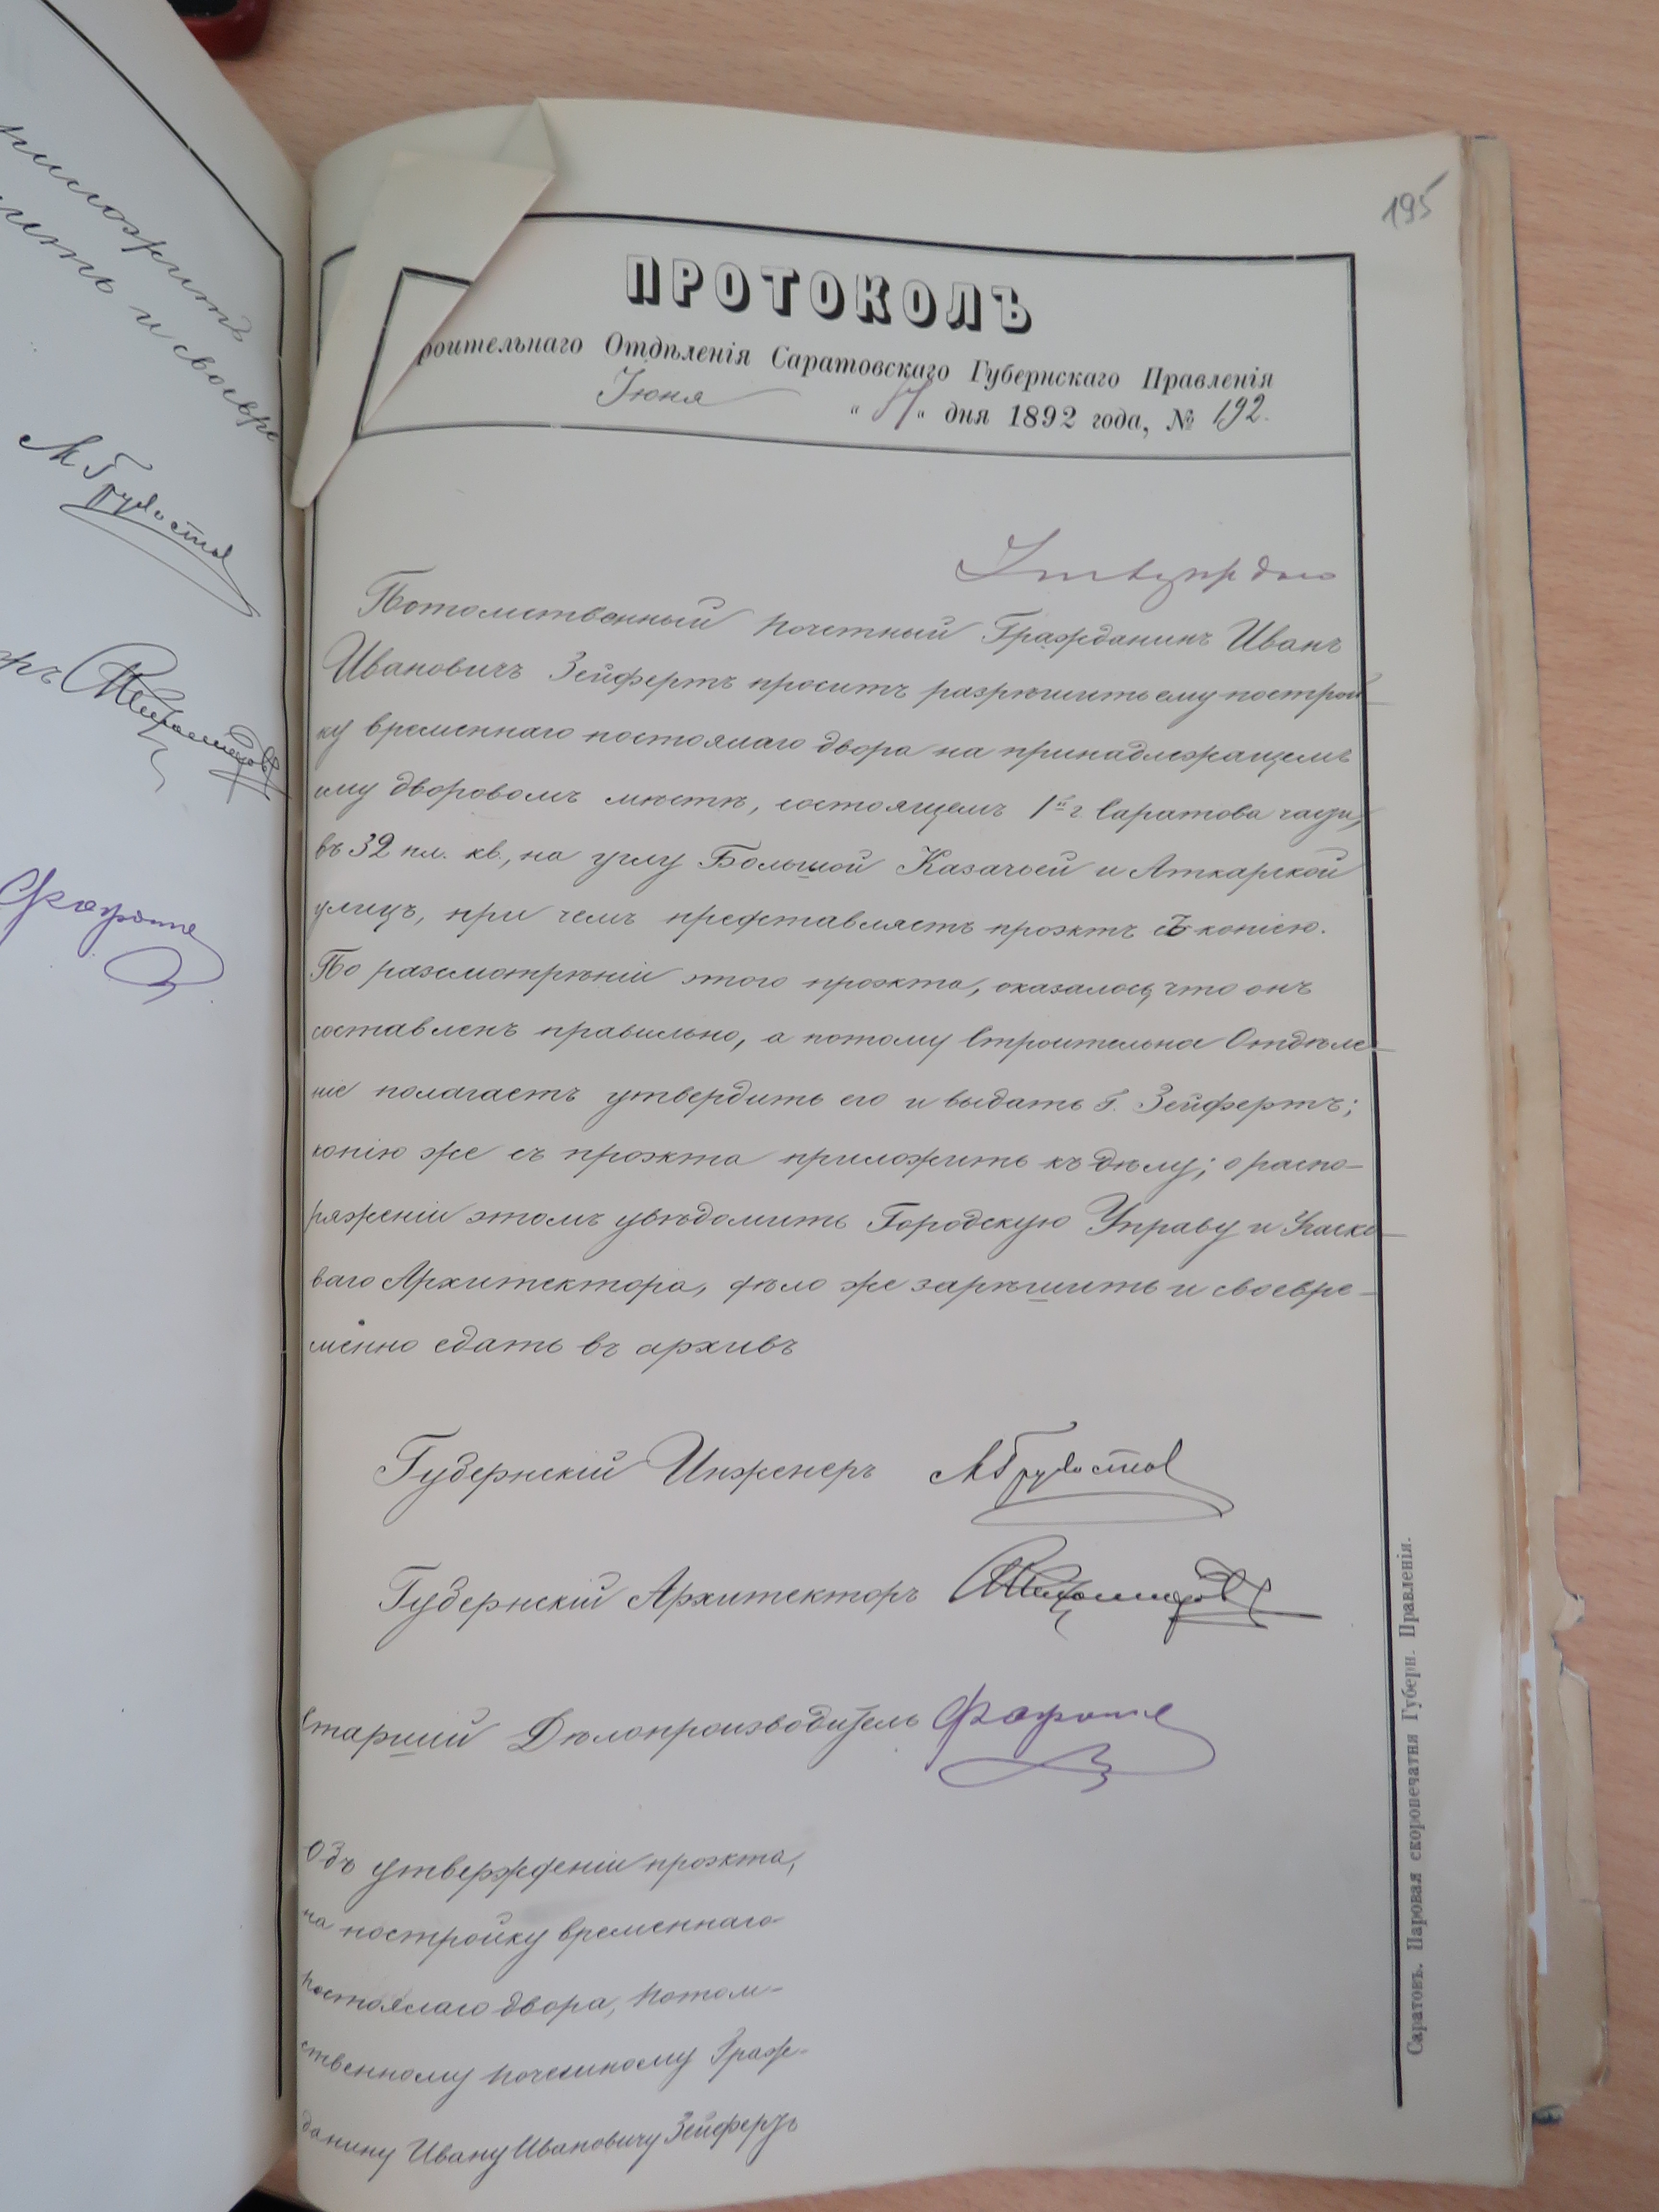 ниложить
195
ПРОТОКОЛЪ
роительнаго Отдѣленія Саратовскаго Губернскаго Правленія
Іюня " 17 " дня 1892 года, № 192.
Утверждаю
Потомственный почетный Гражданинъ Иванъ
Ивановичъ Зейфертъ проситъ разрѣшить ему построй-
ку временнаго постоялаго двора на принадлежащемъ
ему дворовомъ мѣстѣ, состоящемъ 1й г. Саратова части,
въ 32 пл. кв., на углу Большой Казачьей и Аткарской
улицъ, при чемъ представляетъ проэктъ съ копіею.
По разсмотрѣніи этого проэкта, оказалось, что онъ
составленъ правильно, а потому Строительное Отдѣле-
ніе полагаетъ утвердить его и выдать Г. Зейфертъ;
копію же съ проэкта приложить къ дѣлу; о распо-
ряженіи этомъ увѣдомить Городскую Управу и Участко-
ваго Архитектора, дѣло же зарѣшить и своевре-
менно сдать въ архивъ
Губернскій Инженеръ
Губернскій Архитекторъ
Старшій Дѣлопроизводитель
Объ утвержденіи проэкта,
на постройку временнаго
постоялаго двора, потом-
ственному почетному Граж-
данину Ивану Ивановичу Зейфертъ
Саратовъ. Паровая скоропечатня Губерн. Правленія.